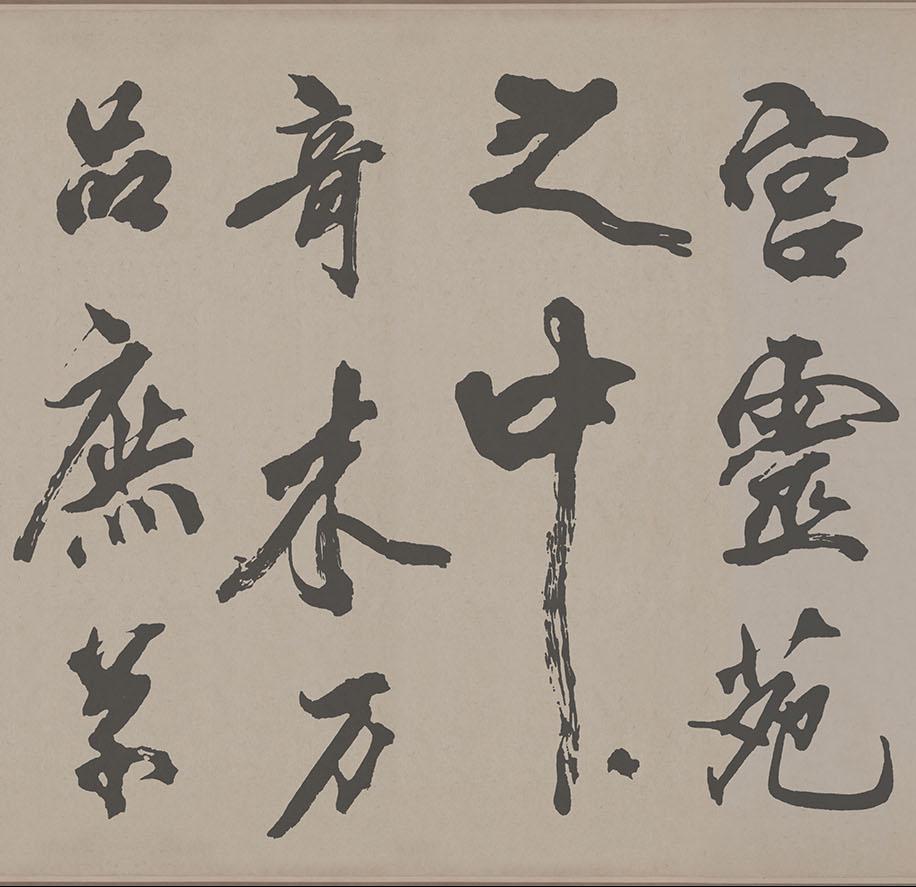 宮靈苑
之中
竒木万
品庶草